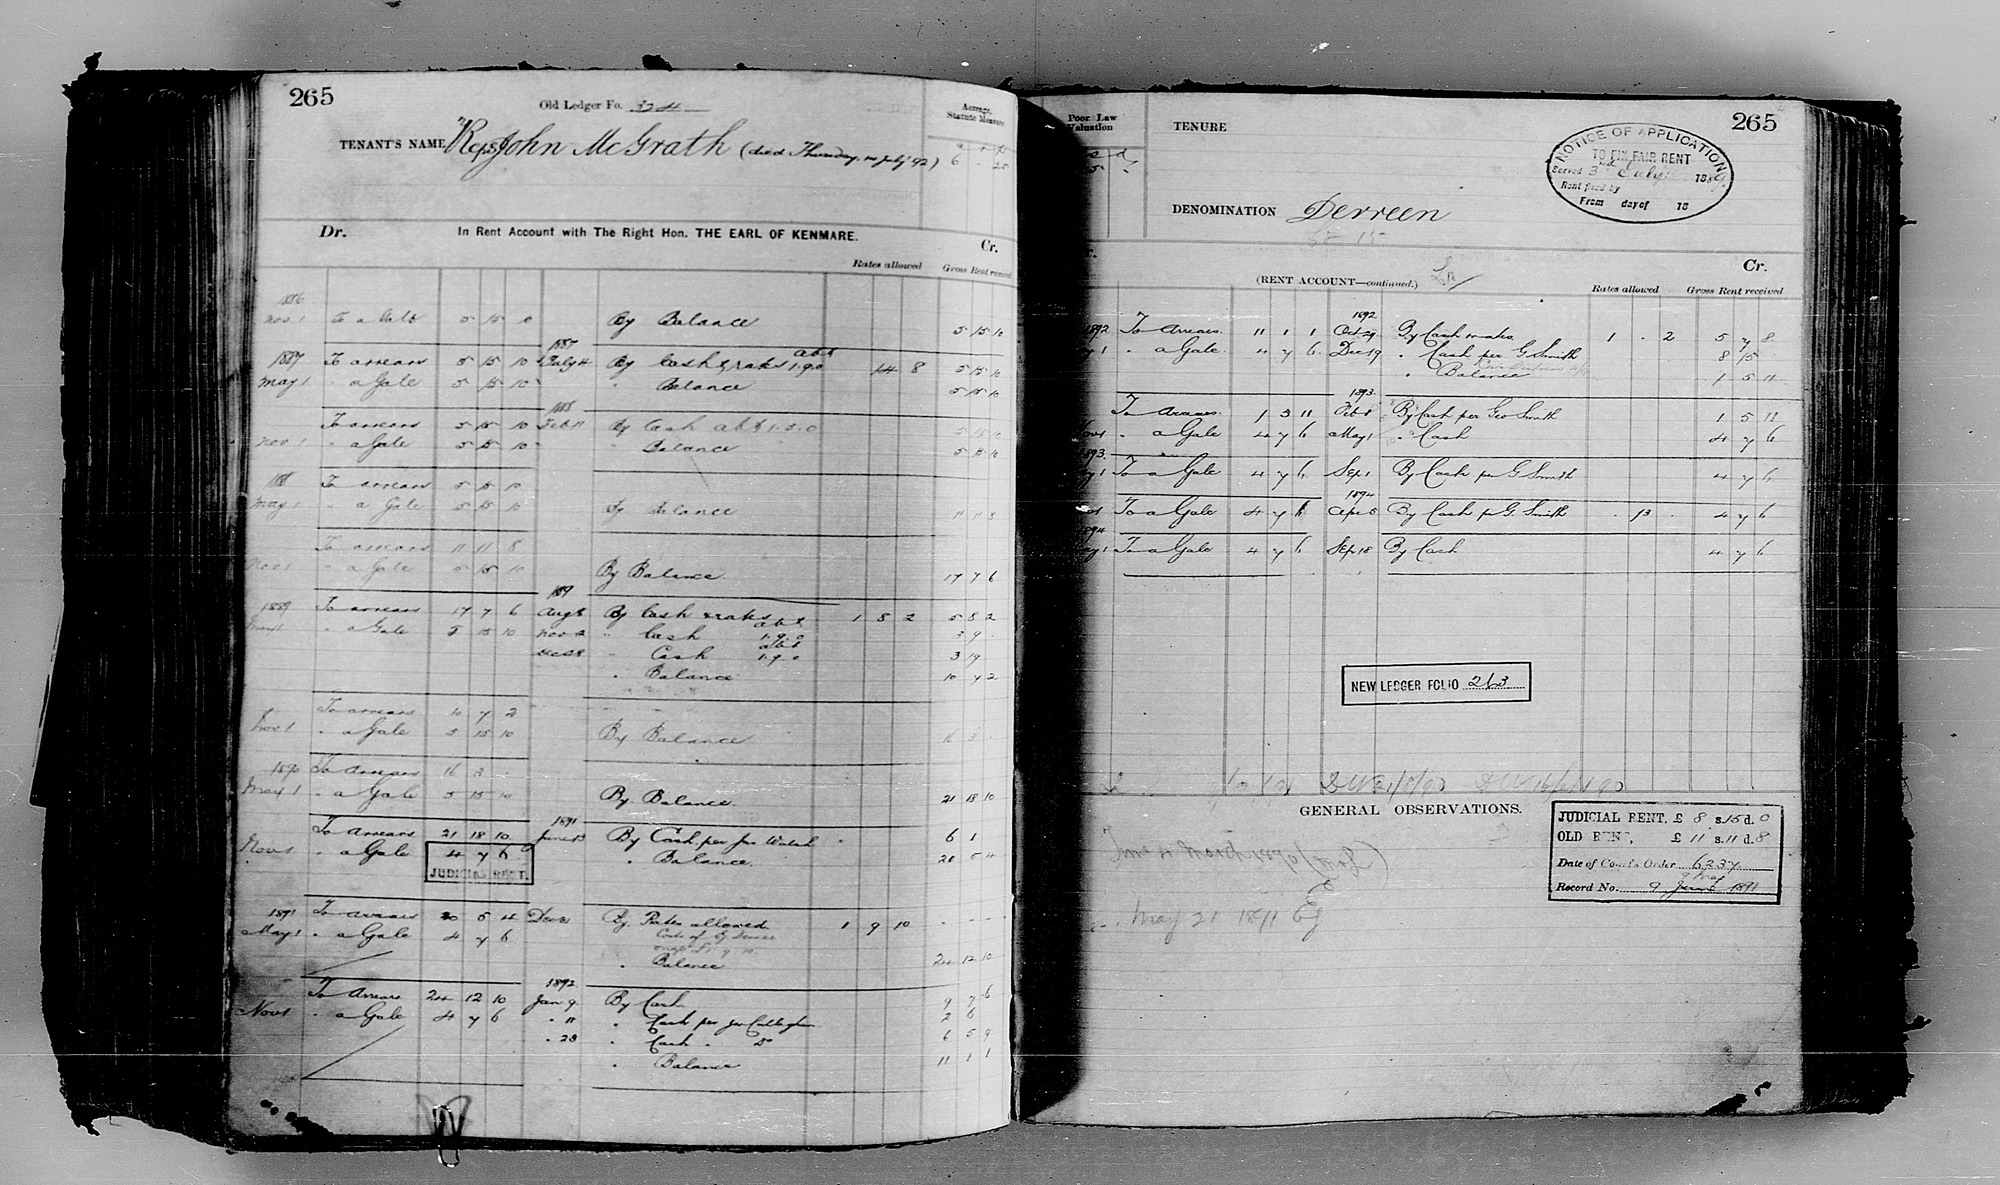 265
Old Ledger Fo. 324
Acreage, Statute Measure
TENANT'S NAME Reps John McGrath (died Thursday 14 July 92)
a r p
6 - 25
Dr. In Rent Account with The Right Hon. THE EARL OF KENMARE. Cr.
Rates allowed Gross Rent received
1886
Nov 1 To a Gale 5 15 10 By Balance 5 15 10
1887
1887 To arrears 5 15 10 July 4 By Cash & rates abt 1.9.0 14 8 5 15 10
May 1 " a Gale 5 15 10 " Balance 5 15 10
1888
To arrears 5 15 10 Feb 11 By Cash abt 1.9.0 5 15 10
Nov 1 " a Gale 5 15 10 Balance 5 15 10
1888 To arrears 5 15 10
May 1 " a Gale 5 15 10 By Balance 11 11 8
To arrears 11 11 8
Nov 1 " a Gale 5 15 10 By Balance 17 7 6
1889
1889 To arrears 17 7 6 Aug 8 By Cash & rates 1 8 2 5 8 2
May 1 " a Gale 5 15 10 Nov 2 " Cash abt 1.9.0 3 9
Dec 28 " Cash abt 1.9.0 3 19
" Balance 10 7 2
To arrears 10 7 2
Nov 1 " a Gale 5 15 10 By Balance 16 3 -
1890 To Arrears 16 3 -
May 1 " a Gale 5 15 10 By Balance 21 18 10
1891
To Arrears 21 18 10 June 13 By Cash per Jas Walsh 6 1
Nov 1 " a Gale 4 7 6 " Balance 20 5 4
JUDICIAL RENT.
1891 To Arrears 20 5 4 Dec 21 By Rates allowed 1 9 10 - - -
May 1 " a Gale 4 7 6
" Balance 24 12 10
1892
To Arrears 24 12 10 Jan 9 By Cash 9 7 6
Nov 1 " a Gale 4 7 6 " 11 " Cash per Jer Callaghan 2 6
" 23 " Cash " Do 6 5 9
" Balance 11 1 1
Poor Law Valuation
TENURE
265
NOTICE OF APPLICATION
TO FIX FAIR RENT
Served 3rd July 1889
Rent fixed by
From day of 18
DENOMINATION Derreen
Cr.
(RENT ACCOUNT—continued.)
Rates allowed Gross Rent received
1892
1892 To Arrears 11 1 1 Oct 29 By Cash & rates 1 - 2 5 7 8
May 1 " a Gale 4 7 6 Dec 19 " Cash per G Smith 8 15
" Balance 1 5 11
1893
To Arrears 1 5 11 Feb 8 By Cash per Geo Smith 1 5 11
Nov 1 " a Gale 4 7 6 May 1 " Cash 4 7 6
1893
May 1 To a Gale 4 7 6 Sep 1 By Cash per G Smith 4 7 6
1894
Nov 1 To a Gale 4 7 6 Apl 5 By Cash per G. Smith - 13 - 4 7 6
1894
May 1 To a Gale 4 7 6 Sep 18 By Cash 4 7 6
NEW LEDGER FOLIO 263
GENERAL OBSERVATIONS.
JUDICIAL RENT, £ 8 s. 15 d. 0
OLD RENT, £ 11 s. 11 d. 8
Date of Court's Order 6237
Record No. 9 June 1891
May 21 1891